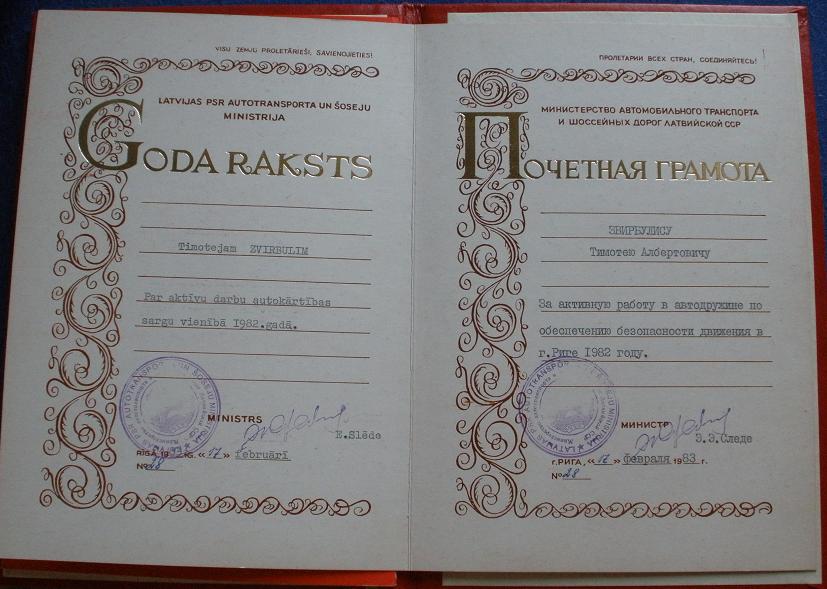 VISU ZEMJU PROLETĀRIEŠI, SAVIENOJIETIES!
LATVIJAS PSR AUTOTRANSPORTA UN ŠOSEJU
MINISTRIJA
GODA RAKSTS
Timotejam ZVIRBULIM
Par aktīvu darbu autokārtības
sargu vienībā 1982.gadā.
MINISTRS
E.Slēde
RĪGĀ, 19 G. «17» februārī
№ 28
ПРОЛЕТАРИИ ВСЕХ СТРАН, СОЕДИНЯЙТЕСЬ!
МИНИСТЕРСТВО АВТОМОБИЛЬНОГО ТРАНСПОРТА
И ШОССЕЙНЫХ ДОРОГ ЛАТВИЙСКОЙ ССР
ПОЧЕТНАЯ ГРАМОТА
ЗВИРБУЛИСУ
Тимотею Албертовичу
За активную работу в автодружине по
обеспечению безопасности движения в
г.Риге 1982 году.
МИНИСТР
Э.Э.Следе
г. РИГА, «17» февраля 1983 г.
№ 28